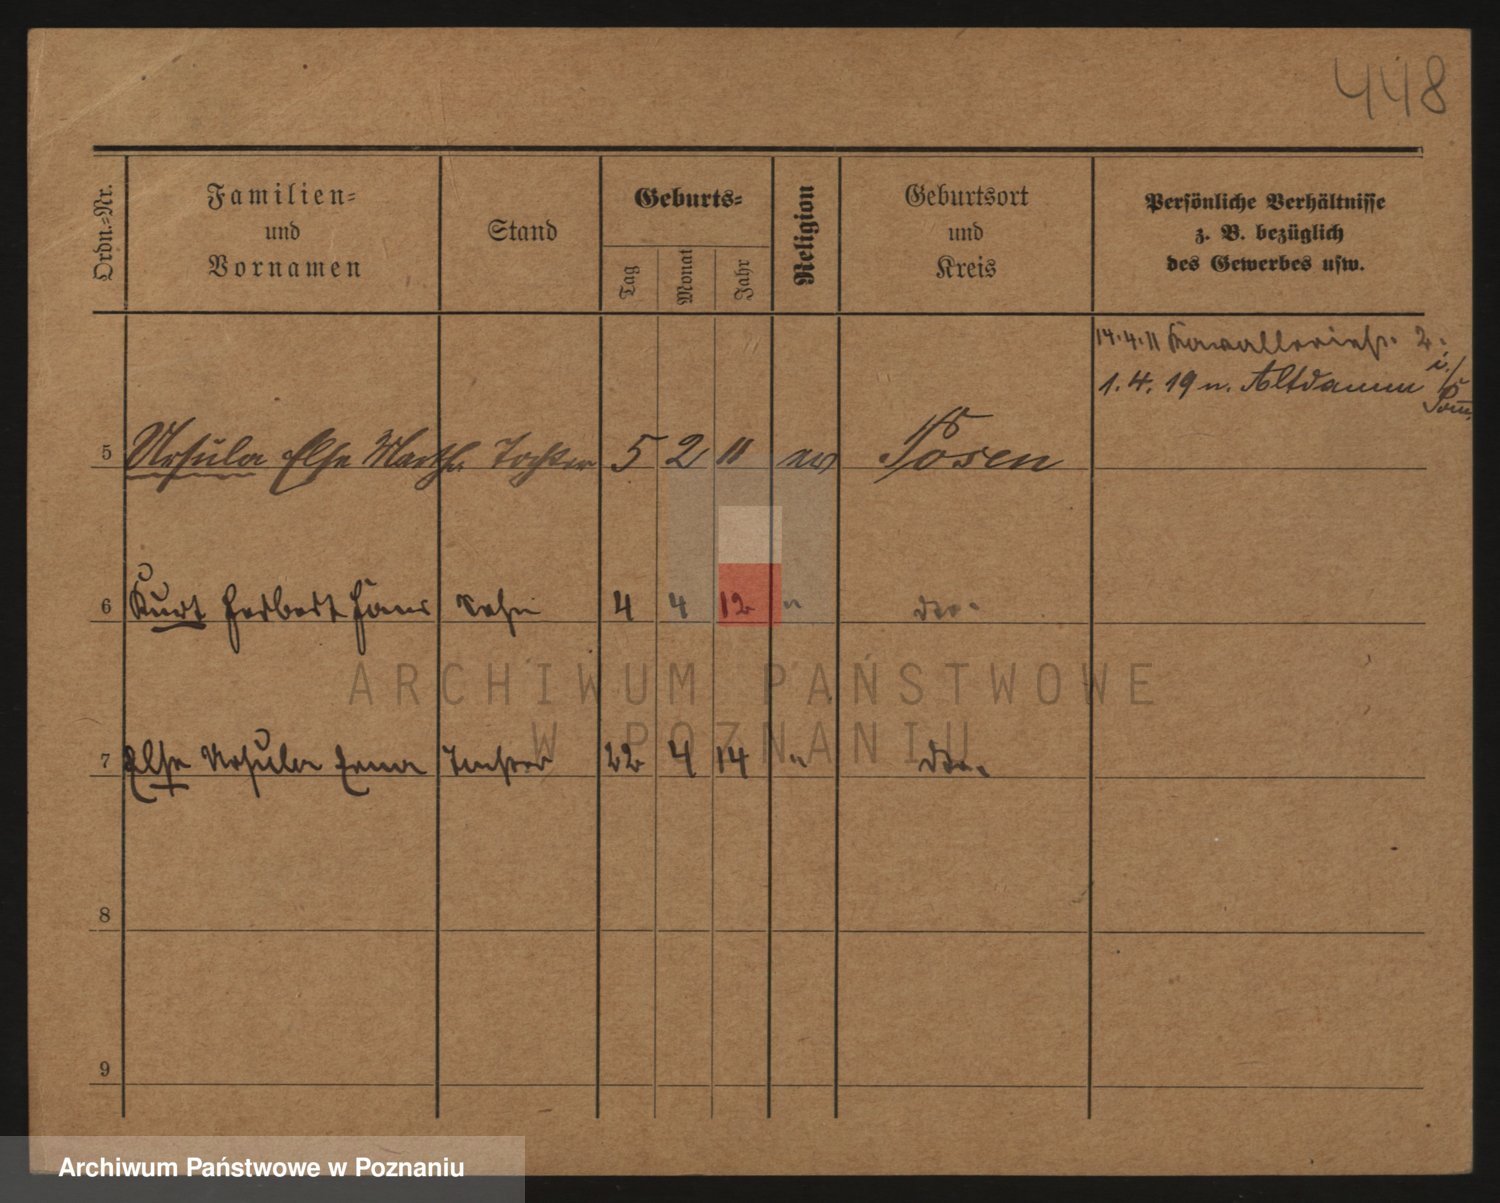 448
Ordn.-Nr.
Familien-
und
Vornamen
Stand
Geburts-
Tag
Monat
Jahr
Religion
Geburtsort
und
Kreis
Persönliche Verhältnisse
z. B. bezüglich
des Gewerbes usw.
14.4.11 Kavalleriestr. 2.
1.4.19 n. Altdamm i/Pom.
5 Ursula Else Martha Tochter 5 2 11 ev Posen
6 Kurt Herbert Hans Sohn 4 4 12 " do.
7 Else Ursula Erna Tochter 22 4 14 " do.
8
9
ARCHIWUM PAŃSTWOWE
W POZNANIU
Archiwum Państwowe w Poznaniu